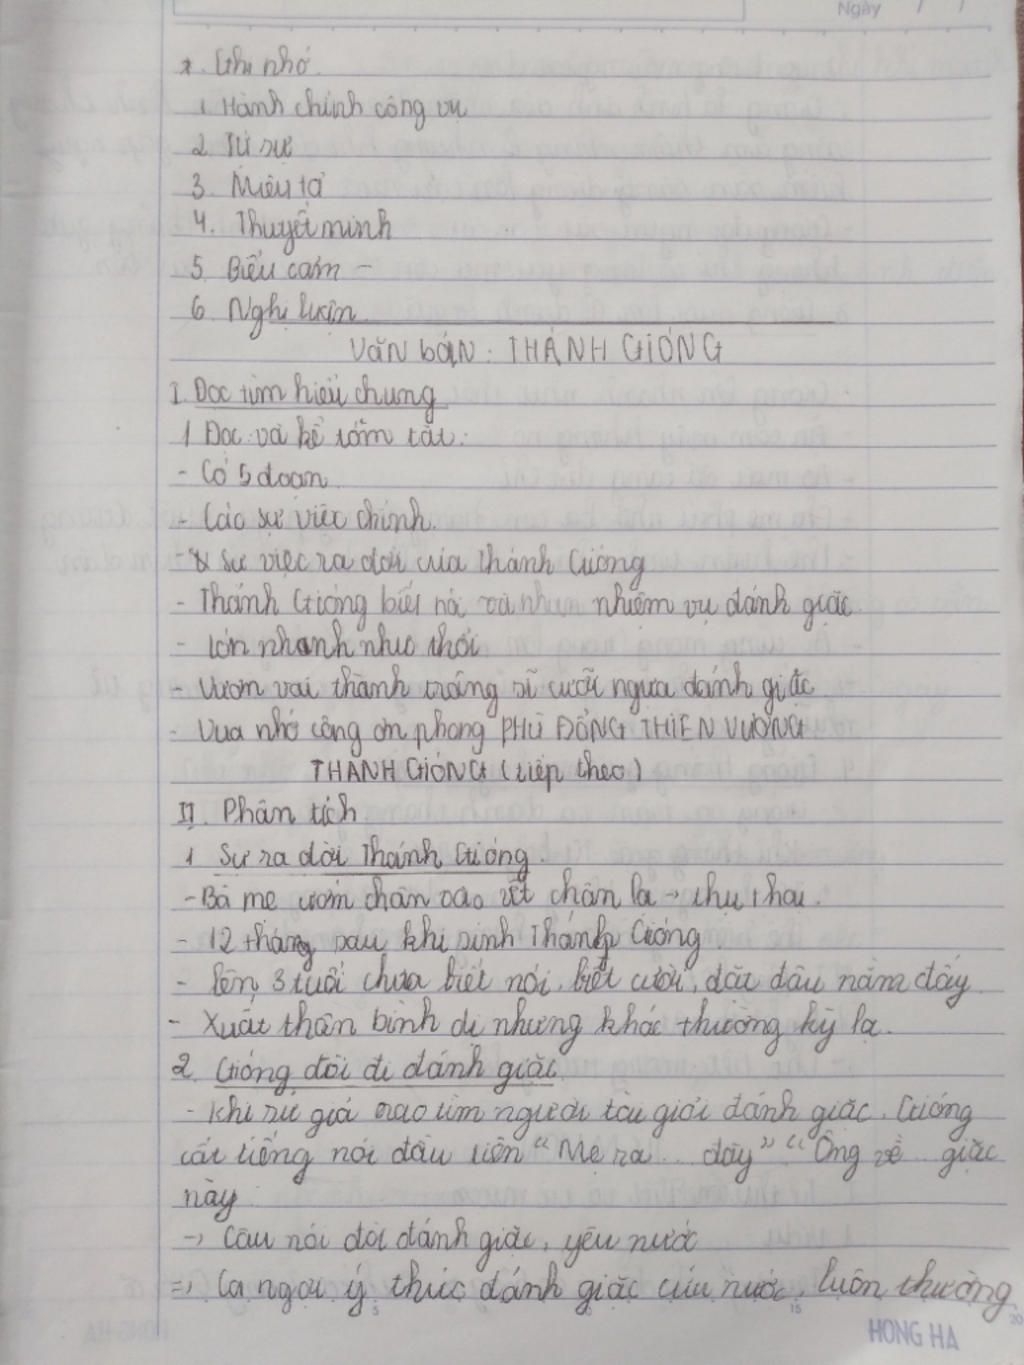 Ngày / /
* Ghi nhớ
1. Hành chính công vụ
2. Tự sự
3. Miêu tả
4. Thuyết minh
5. Biểu cảm -
6. Nghị luận
Văn bản: THÁNH GIÓNG
I. Đọc tìm hiểu chung
1 Đọc và kể tóm tắt:
- Có 5 đoạn
- Các sự việc chính.
- Sự việc ra đời của Thánh Gióng
- Thánh Gióng biết nói và nhận nhiệm vụ đánh giặc
- lớn nhanh như thổi
- Vươn vai thành tráng sĩ cưỡi ngựa đánh giặc
- Vua nhớ công ơn phong PHÙ ĐỔNG THIÊN VƯƠNG
THÁNH GIÓNG (tiếp theo)
II. Phân tích
1 Sự ra đời Thánh Gióng.
- Bà mẹ ướm chân vào vết chân lạ → thụ thai.
- 12 tháng sau khi sinh Thánh Gióng.
- lên 3 tuổi chưa biết nói, biết cười, đặt đâu nằm đấy
- Xuất thân bình dị nhưng khác thường kỳ lạ.
2. Gióng đòi đi đánh giặc
- Khi sứ giả rao tìm người tài giỏi đánh giặc. Gióng
cất tiếng nói đầu tiên "Mẹ ra... đây" "Ông về... giặc
này
→ Câu nói đòi đánh giặc, yêu nước
=> Ca ngợi ý thức đánh giặc cứu nước, luôn thường
5
15
20
HONG HA